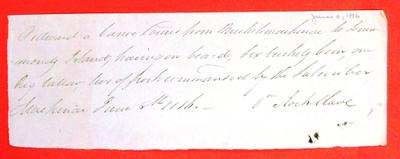 June 8, 1816
a Canoe from Michilimackinac to Drum
mond Island, having on board, Six bushels Corn, one
keg tallow, two of pork commanded by the Subscriber
Mackinac June 8th 1816. —